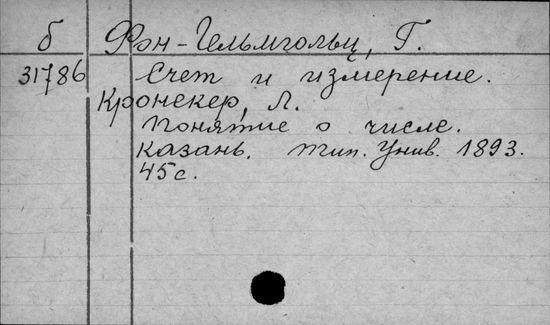 б Фон-Гельмгольц, Г.
31786 Счет и измерение.
Кронекер, Л.
Понятие о числе.
Казань. тип. Унив. 1893.
45 с.